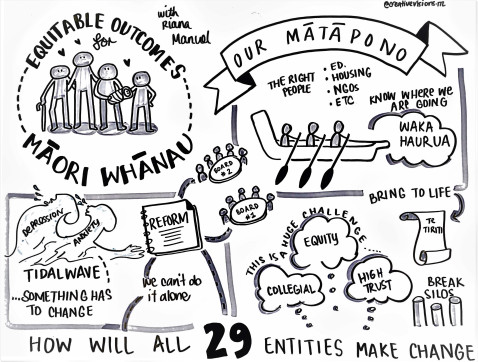 @creativevisions.nz
EQUITABLE OUTCOMES
for
MĀORI WHĀNAU
with
Riana
Manuel
OUR MĀTĀPONO
THE RIGHT
PEOPLE
• ED.
• HOUSING
• NGOs
• ETC
KNOW WHERE WE
ARE GOING
WAKA
HAURUA
BOARD
#2
BOARD
#1
BRING TO LIFE
TE
TIRITI
DEPRESSION
ANXIETY
TIDALWAVE
...SOMETHING HAS
TO CHANGE
REFORM
we can't do
it alone
THIS IS A HUGE CHALLENGE...
EQUITY
COLLEGIAL
HIGH
TRUST
BREAK
SILOS
HOW WILL ALL 29 ENTITIES MAKE CHANGE